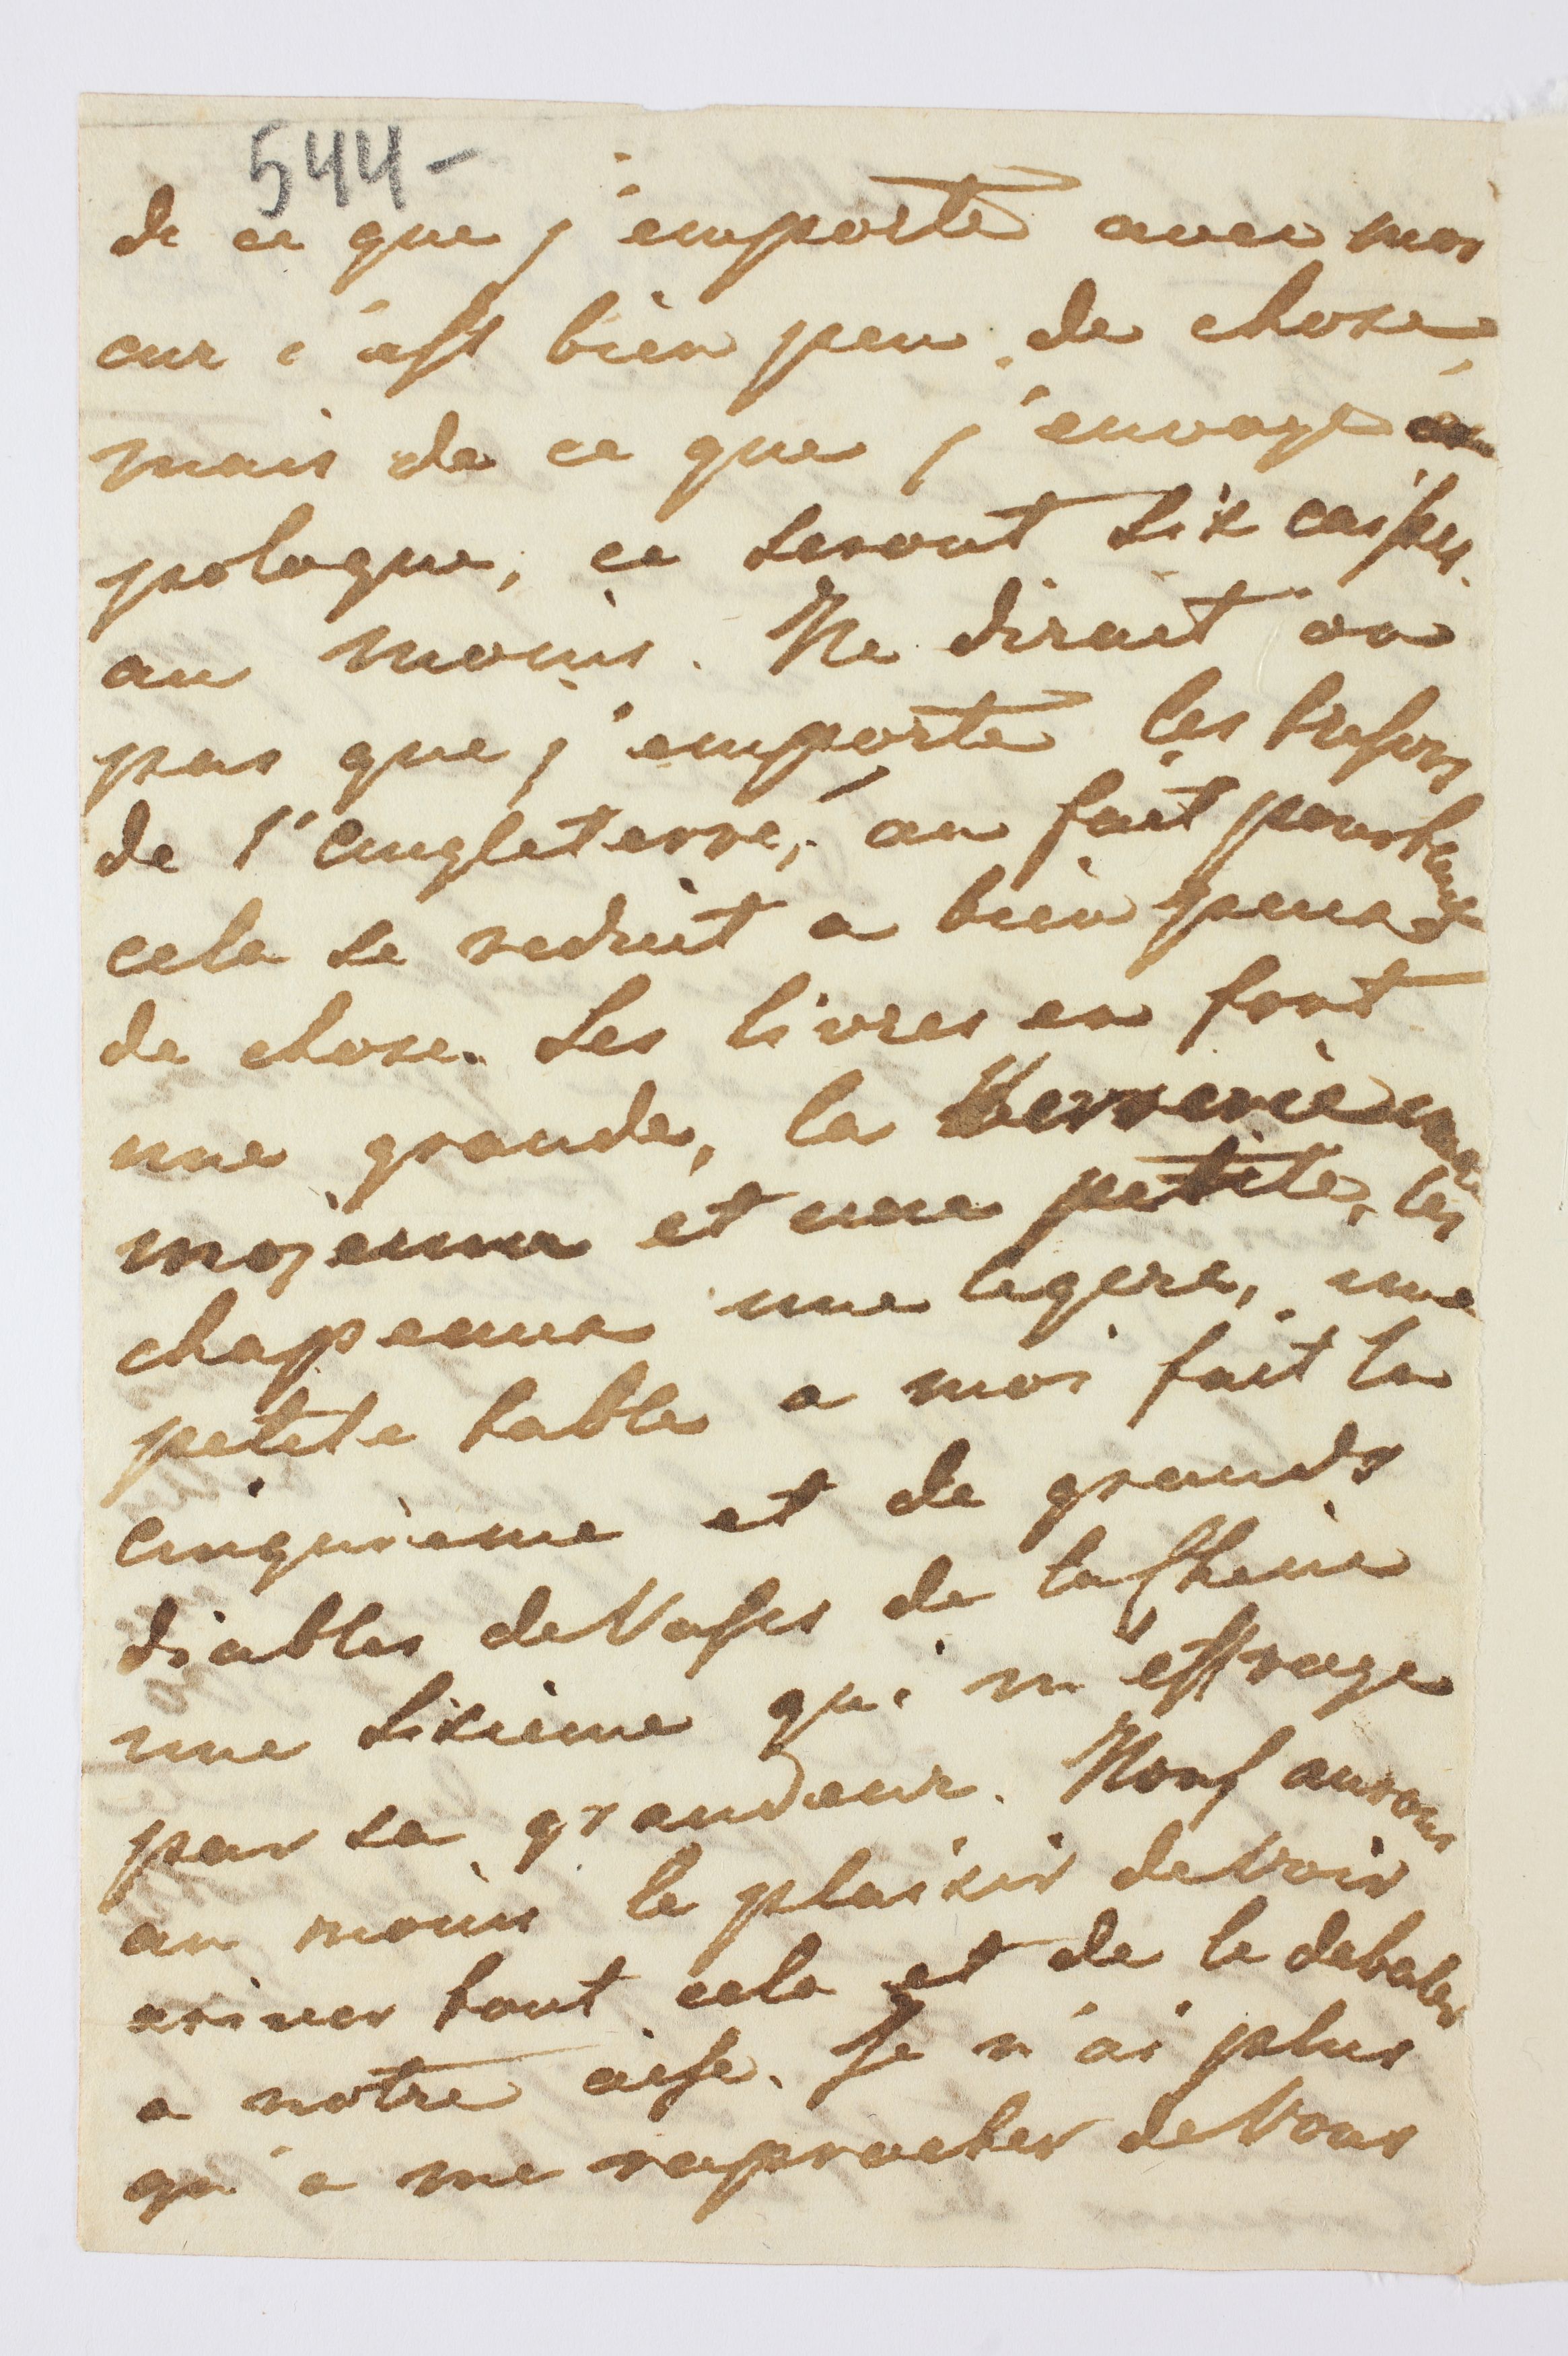 544-
de ce que j'emporte avec moi
car c'est bien peu de chose,
mais de ce que j'envoye en
pologne, ce seront six caisses
au moins. Ne dirait on
pas que j'emporte les tresors
de l'angleterre, au fait pourtant
cela se reduit a bien peu
de chose. Les livres en font
une grande, la Verrerie une
mojenne et une petite, les
chapeaux une legere, une
petite table a moi fait la
cinquieme et de grands
diables de Vases de la Chine
une sixieme qui m'effraye
par sa grandeur. Nous aurons
au moins le plaisir de Voir
ariver tout cela et de le debaler
a notre aise. Je n'ai plus
qu'a me raprocher de Vous